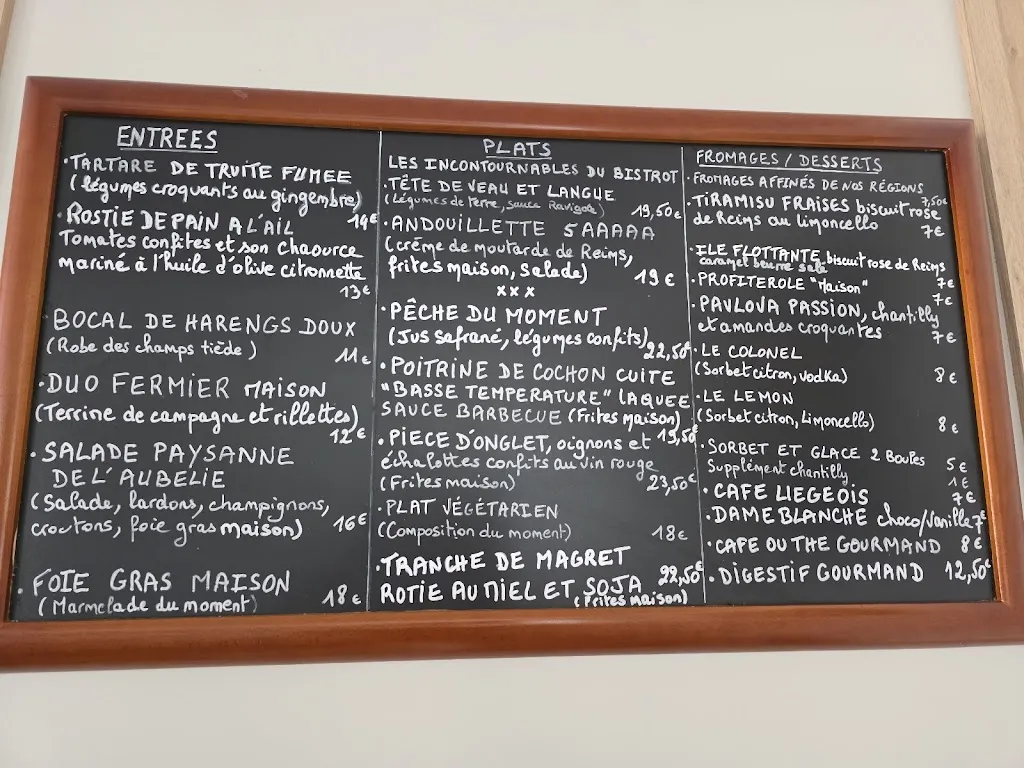 ENTREES
·TARTARE DE TRUITE FUMEE
(légumes croquants au gingembre)
14€
·ROSTIE DE PAIN A L'AIL
Tomates confites et son chaource
mariné à l'huile d'olive citronnette
13€
BOCAL DE HARENGS DOUX
(Robe des champs tiède) 11€
·DUO FERMIER MAISON
(Terrine de campagne et rillettes)
12€
·SALADE PAYSANNE
DE L'AUBELIE
(Salade, lardons, champignons,
croutons, foie gras maison) 16€
·FOIE GRAS MAISON
(Marmelade du moment) 18€
PLATS
LES INCONTOURNABLES DU BISTROT
·TÊTE DE VEAU ET LANGUE
(Légumes de terre, sauce Ravigote) 19,50€
·ANDOUILLETTE 5AAAAA
(crème de moutarde de Reims,
frites maison, salade) 19€
xxx
·PÊCHE DU MOMENT
(Jus safrané, légumes confits) 22,50€
·POITRINE DE COCHON CUITE
"BASSE TEMPERATURE" LAQUEE
SAUCE BARBECUE (Frites maison)
19,50€
·PIECE D'ONGLET, oignons et
échalottes confits au vin rouge
(Frites maison) 23,50€
·PLAT VÉGÉTARIEN
(Composition du moment) 18€
·TRANCHE DE MAGRET
ROTIE AU MIEL ET SOJA 22,50€
(Frites maison)
FROMAGES / DESSERTS
·FROMAGES AFFINÉS DE NOS RÉGIONS
7,50€
·TIRAMISU FRAISES biscuit rose
de Reims au limoncello 7€
·ILE FLOTTANTE, biscuit rose de Reims
caramel beurre salé 7€
·PROFITEROLE "Maison"
7€
·PAVLOVA PASSION, chantilly
et amandes croquantes 7€
·LE COLONEL
(Sorbet citron, vodka) 8€
·LE LEMON
(Sorbet citron, Limoncello) 8€
·SORBET ET GLACE 2 BOULES 5€
Supplément chantilly 1€
·CAFE LIEGEOIS 7€
·DAME BLANCHE choco/vanille 7€
·CAFE OU THE GOURMAND 8€
·DIGESTIF GOURMAND 12,50€